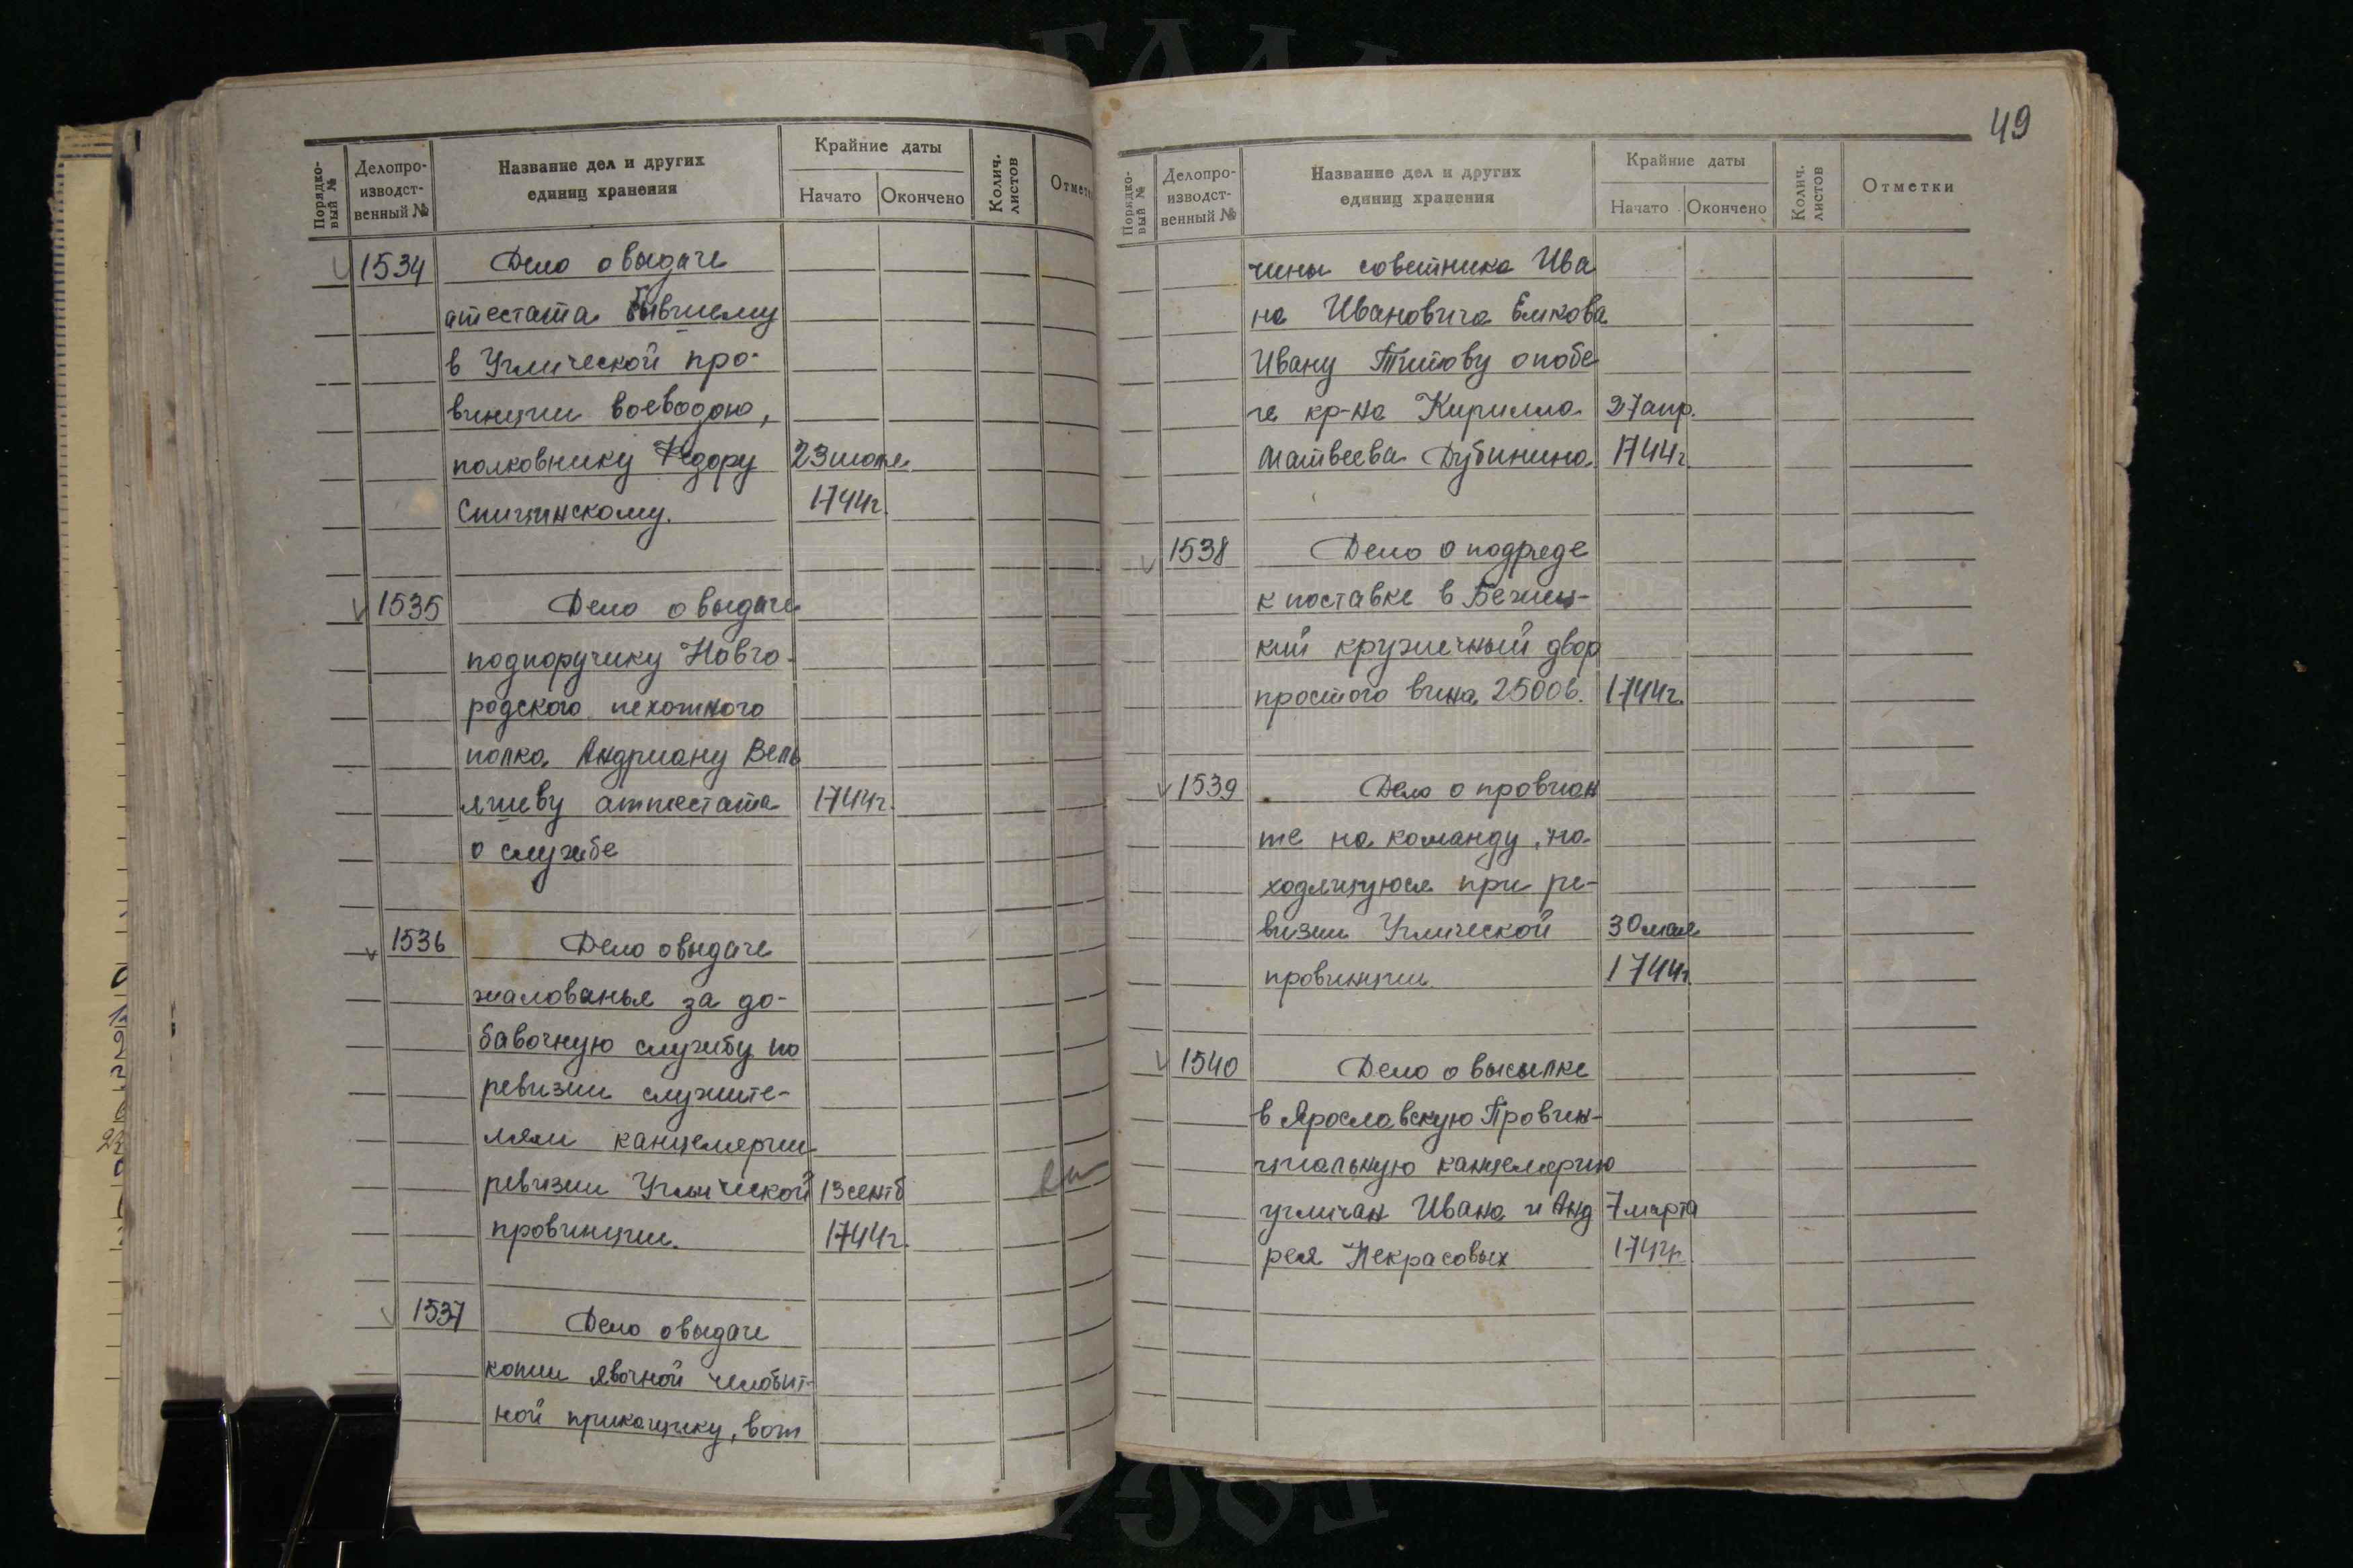 Порядко-
вый №
Делопро-
изводст-
венный №
Название дел и других
единиц хранения
Крайние даты
Начато
Окончено
Колич.
листов
Отметк
1534 Дело о выдаче
атестата бывшему
в Углической про-
винции воеводою,
полковнику Федору 23 июля
Спицинскому. 1744г.
1535 Дело о выдаче
подпоручику Новго-
родского пехотного
полка Андриану Вель
яшеву аттестата 1744г.
о службе
1536 Дело о выдаче
жалованья за до-
бавочную службу по
ревизии служите-
лям канцелярии
ревизии Углической 13 сентб
провинции. 1744г.
1537 Дело о выдаче
копии явочной челобит-
ной прикащику, вот
49
Порядко-
вый №
Делопро-
изводст-
венный №
Название дел и других
единиц хранения
Крайние даты
Начато
Окончено
Колич.
листов
Отметки
чины советника Ива
на Ивановича Елкова
Ивану Титову о побе
ге кр-на Кирилла 27 апр.
Матвеева Дубинина 1744г
1538 Дело о подряде
к поставке в Бежец-
кий кружечный двор
простого вина 2500 в. 1744г.
1539 Дело о провиан
те на команду, на
ходящуюся при ре-
визии Углической 30 мая
провинции 1744г
1540 Дело о высылке
в Ярославскую Провин-
циальную канцелярию
угличан Ивана и Анд 7 марта
рея Некрасовых 1744г.